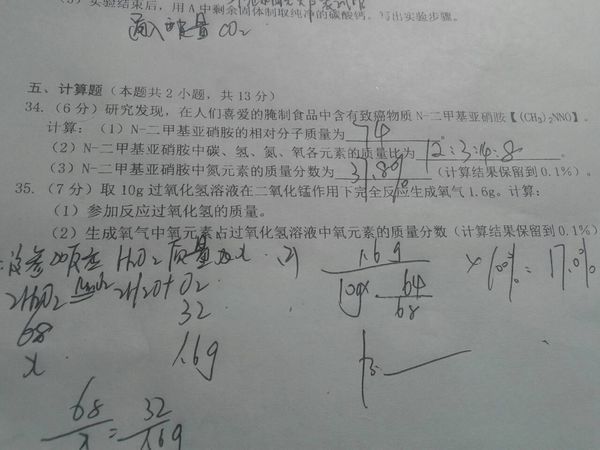 (3) 实验结束后，用A中剩余固体制取纯净的碳酸钙。写出实验步骤。
通入 CO₂
五、计算题（本题共2小题，共13分）
34.（6分）研究发现，在人们喜爱的腌制食品中含有致癌物质N-二甲基亚硝胺【(CH₃)₂NNO】。
计算：（1）N-二甲基亚硝胺的相对分子质量为 74 。
（2）N-二甲基亚硝胺中碳、氢、氮、氧各元素的质量比为 12:3:14:8 。
（3）N-二甲基亚硝胺中氮元素的质量分数为 37.8% （计算结果保留到0.1%）。
35.（7分）取10g过氧化氢溶液在二氧化锰作用下完全反应生成氧气1.6g。计算：
（1）参加反应过氧化氢的质量。
（2）生成氧气中氧元素占过氧化氢溶液中氧元素的质量分数（计算结果保留到0.1%）
:设参加反应 H₂O₂ 质量为x
2H₂O₂ MnO₂ 2H₂O+O₂
68 32
x 1.6g
68/x = 32/1.6g
2) 1.6g / 10g× 64/68 ×100% = 17.0%